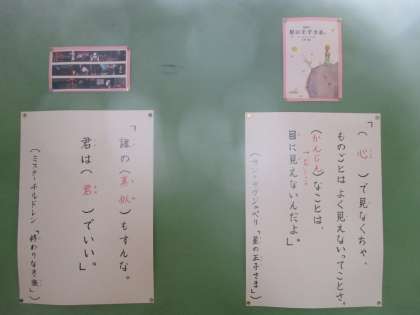 星の王子さま
「(心)で見なくちゃ、
ものごとは よく見えないってことさ。
(かんじん)なことは、
目に見えないんだよ」。
(サン・テグジュペリ「星の王子さま」)
「誰の(真似)もすんな。
君は(君)でいい」。
(ミスターチルドレン「終わりなき旅」)